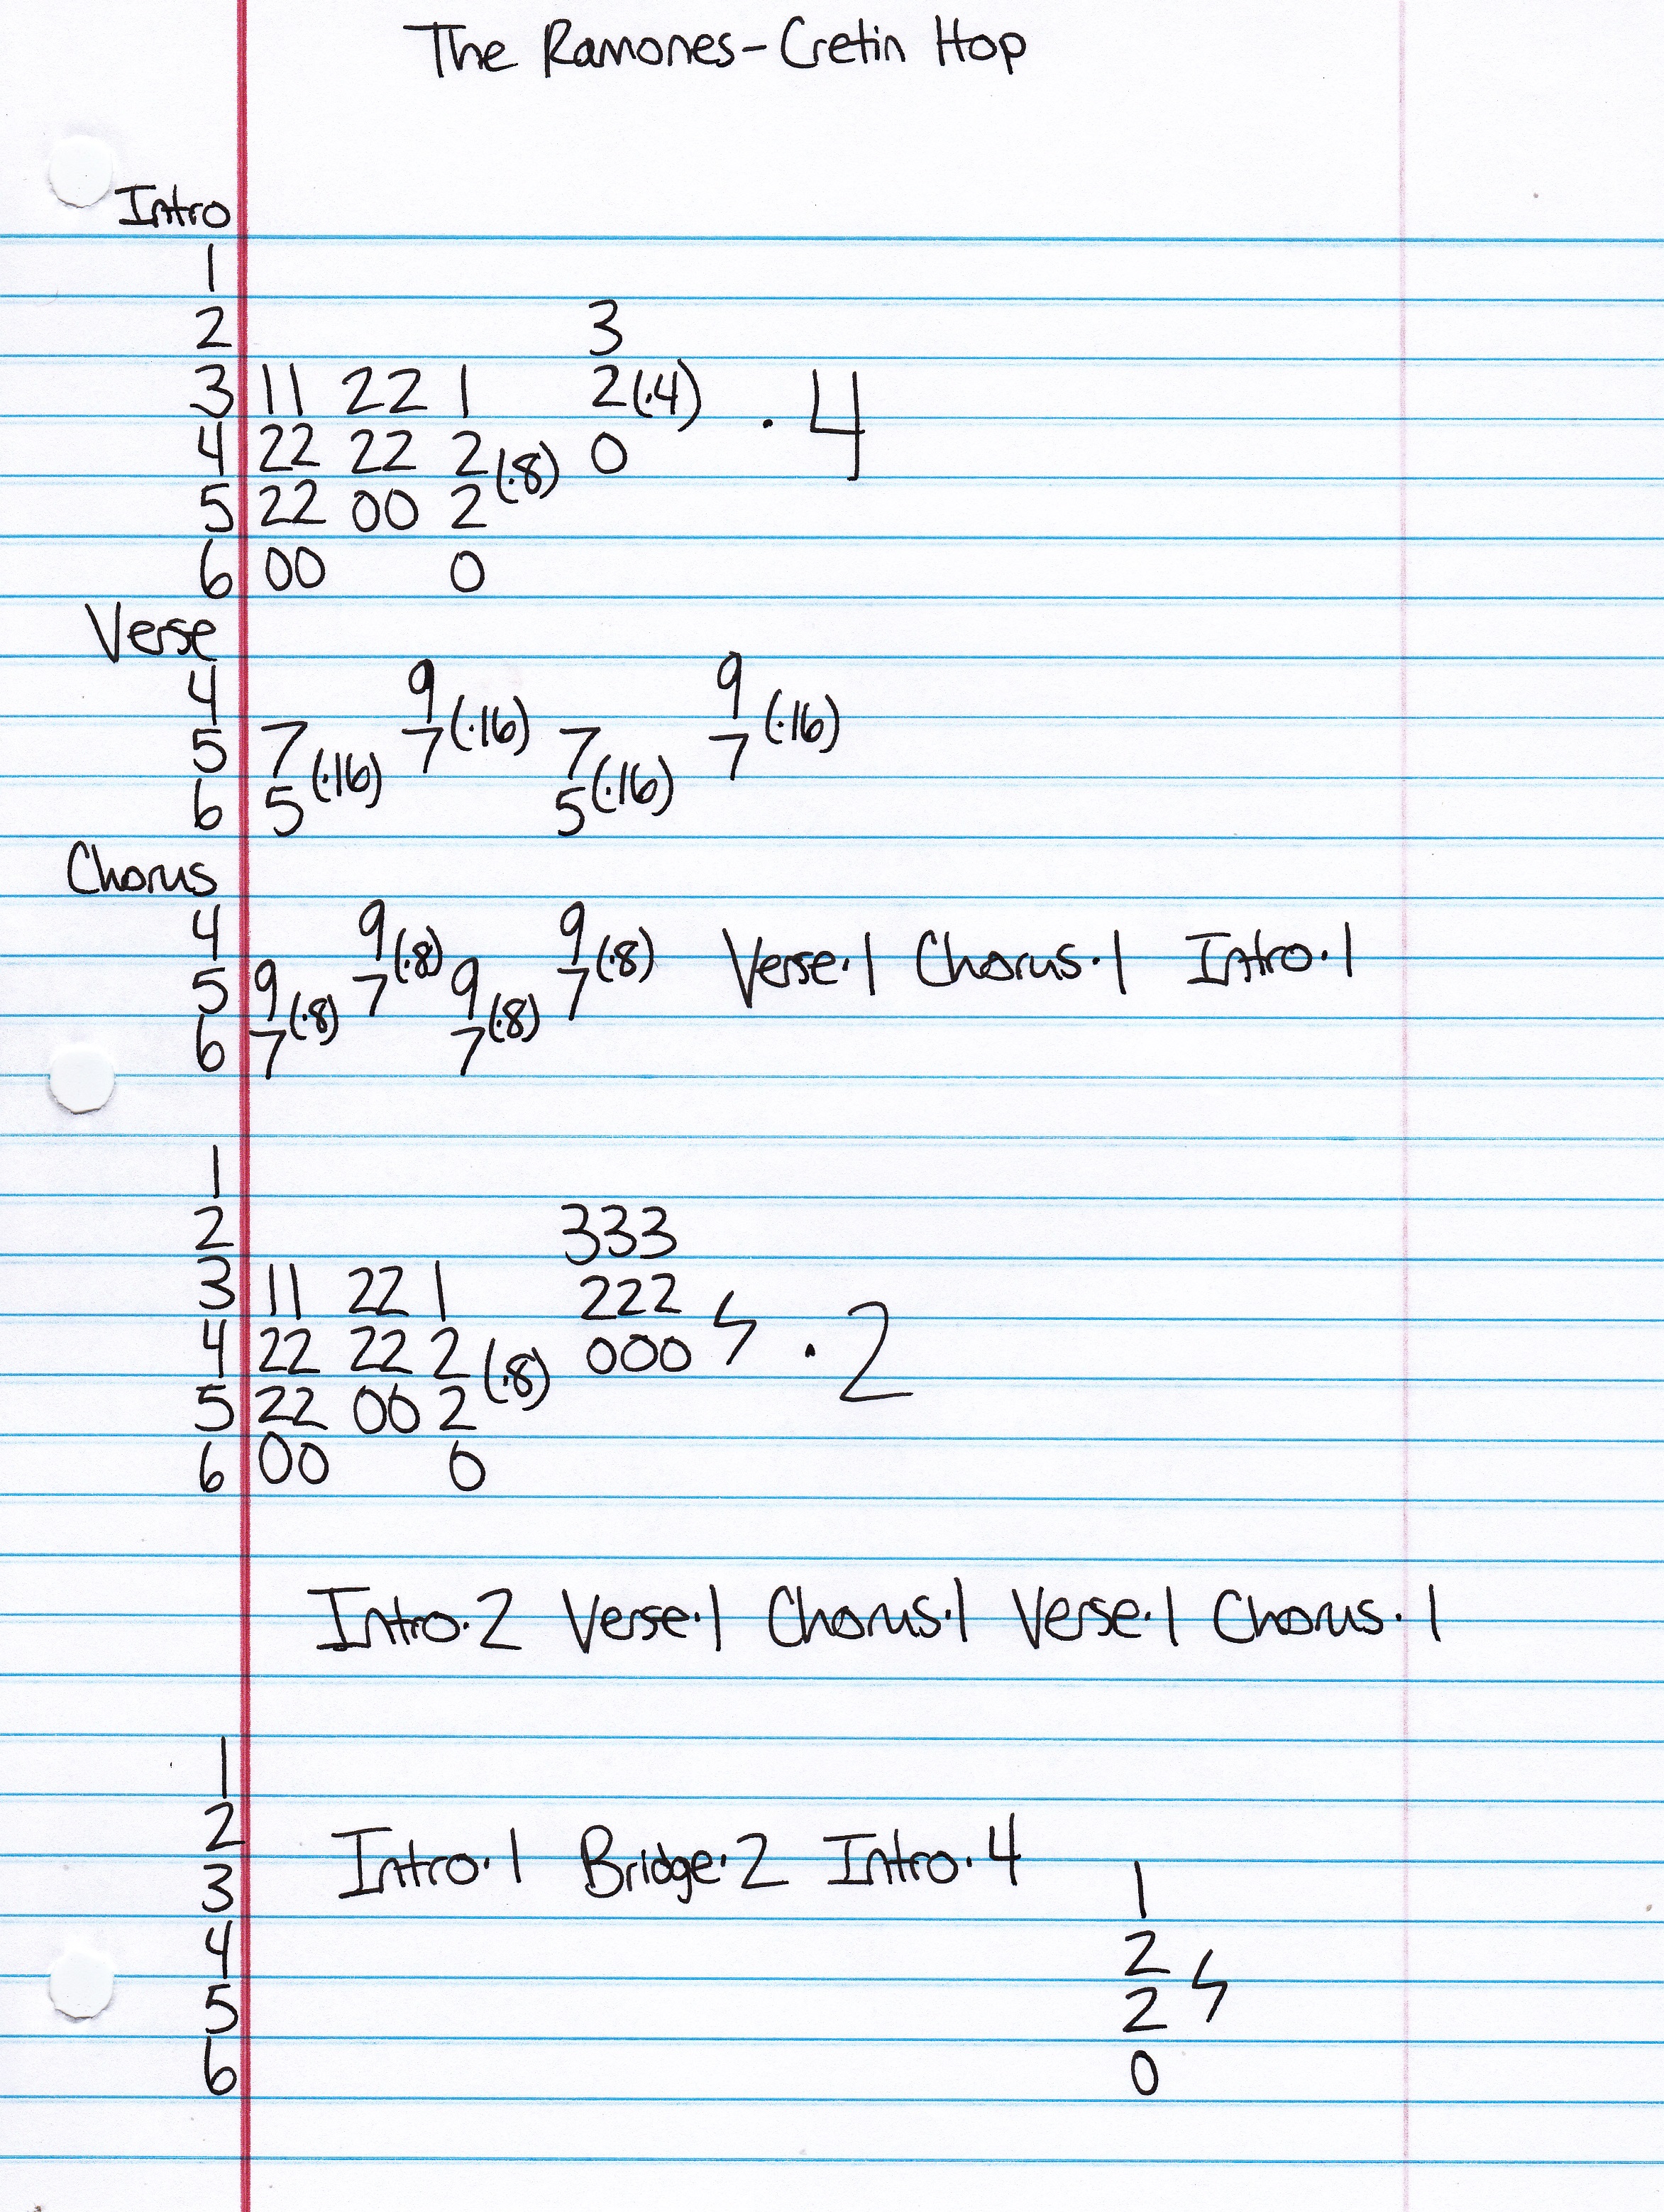 The Ramones-Cretin Hop
Intro
1
2 3
3 11 22 1 2(·4) · 4
4 22 22 2(·8) 0
5 22 00 2
6 00 0
Verse
4 9 9
5 7 7(·16) 7 7(·16)
6 5(·16) 5(·16)
Chorus
4 9 9
5 9 7(·8) 9 7(·8) Verse·1 Chorus·1 Intro·1
6 7(·8) 7(·8)
1
2 333
3 11 22 1 222
4 22 22 2(·8) 000 ϟ · 2
5 22 00 2
6 00 0
Intro·2 Verse·1 Chorus·1 Verse·1 Chorus·1
1
2
3 Intro·1 Bridge·2 Intro·4 1
4 2
5 2 ϟ
6 0